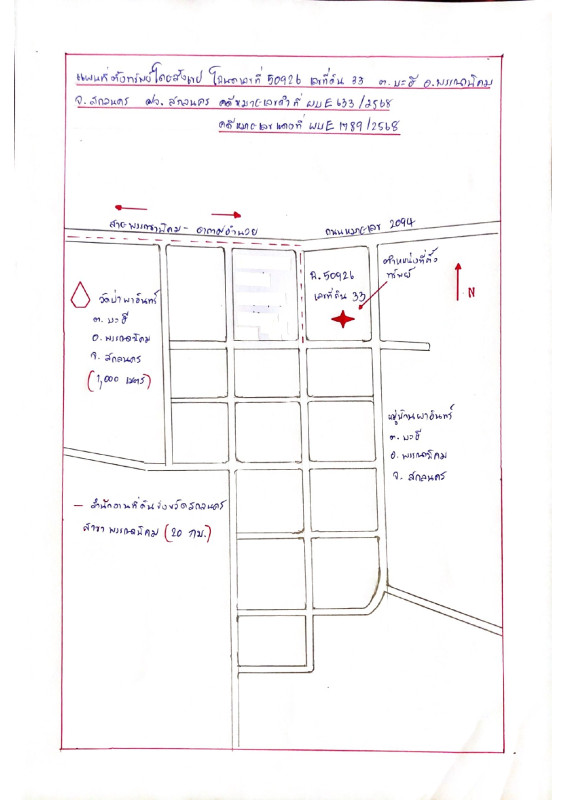 แผนที่ตั้งทรัพย์โดยสังเขป โฉนดเลขที่ 50926 เลขที่ดิน 33 ต.บะฮี อ.พรรณานิคม
จ.สกลนคร ศจ. สกลนคร คดีหมายเลขดำที่ ผบE 633/2568
คดีหมายเลขแดงที่ ผบE 1789/2568
สาย พรรณานิคม - อากาศอำนวย
ถนนหมายเลข 2094
ฉ.50926
เลขที่ดิน 33
ตำแหน่งที่ตั้ง
ทรัพย์
N
วัดป่าผาอินทร์
ต. บะฮี
อ. พรรณานิคม
จ. สกลนคร
(1,000 เมตร)
หมู่บ้านผาอินทร์
ต. บะฮี
อ. พรรณานิคม
จ. สกลนคร
- สำนักงานที่ดินจังหวัดสกลนคร
สาขา พรรณานิคม (20 กม.)